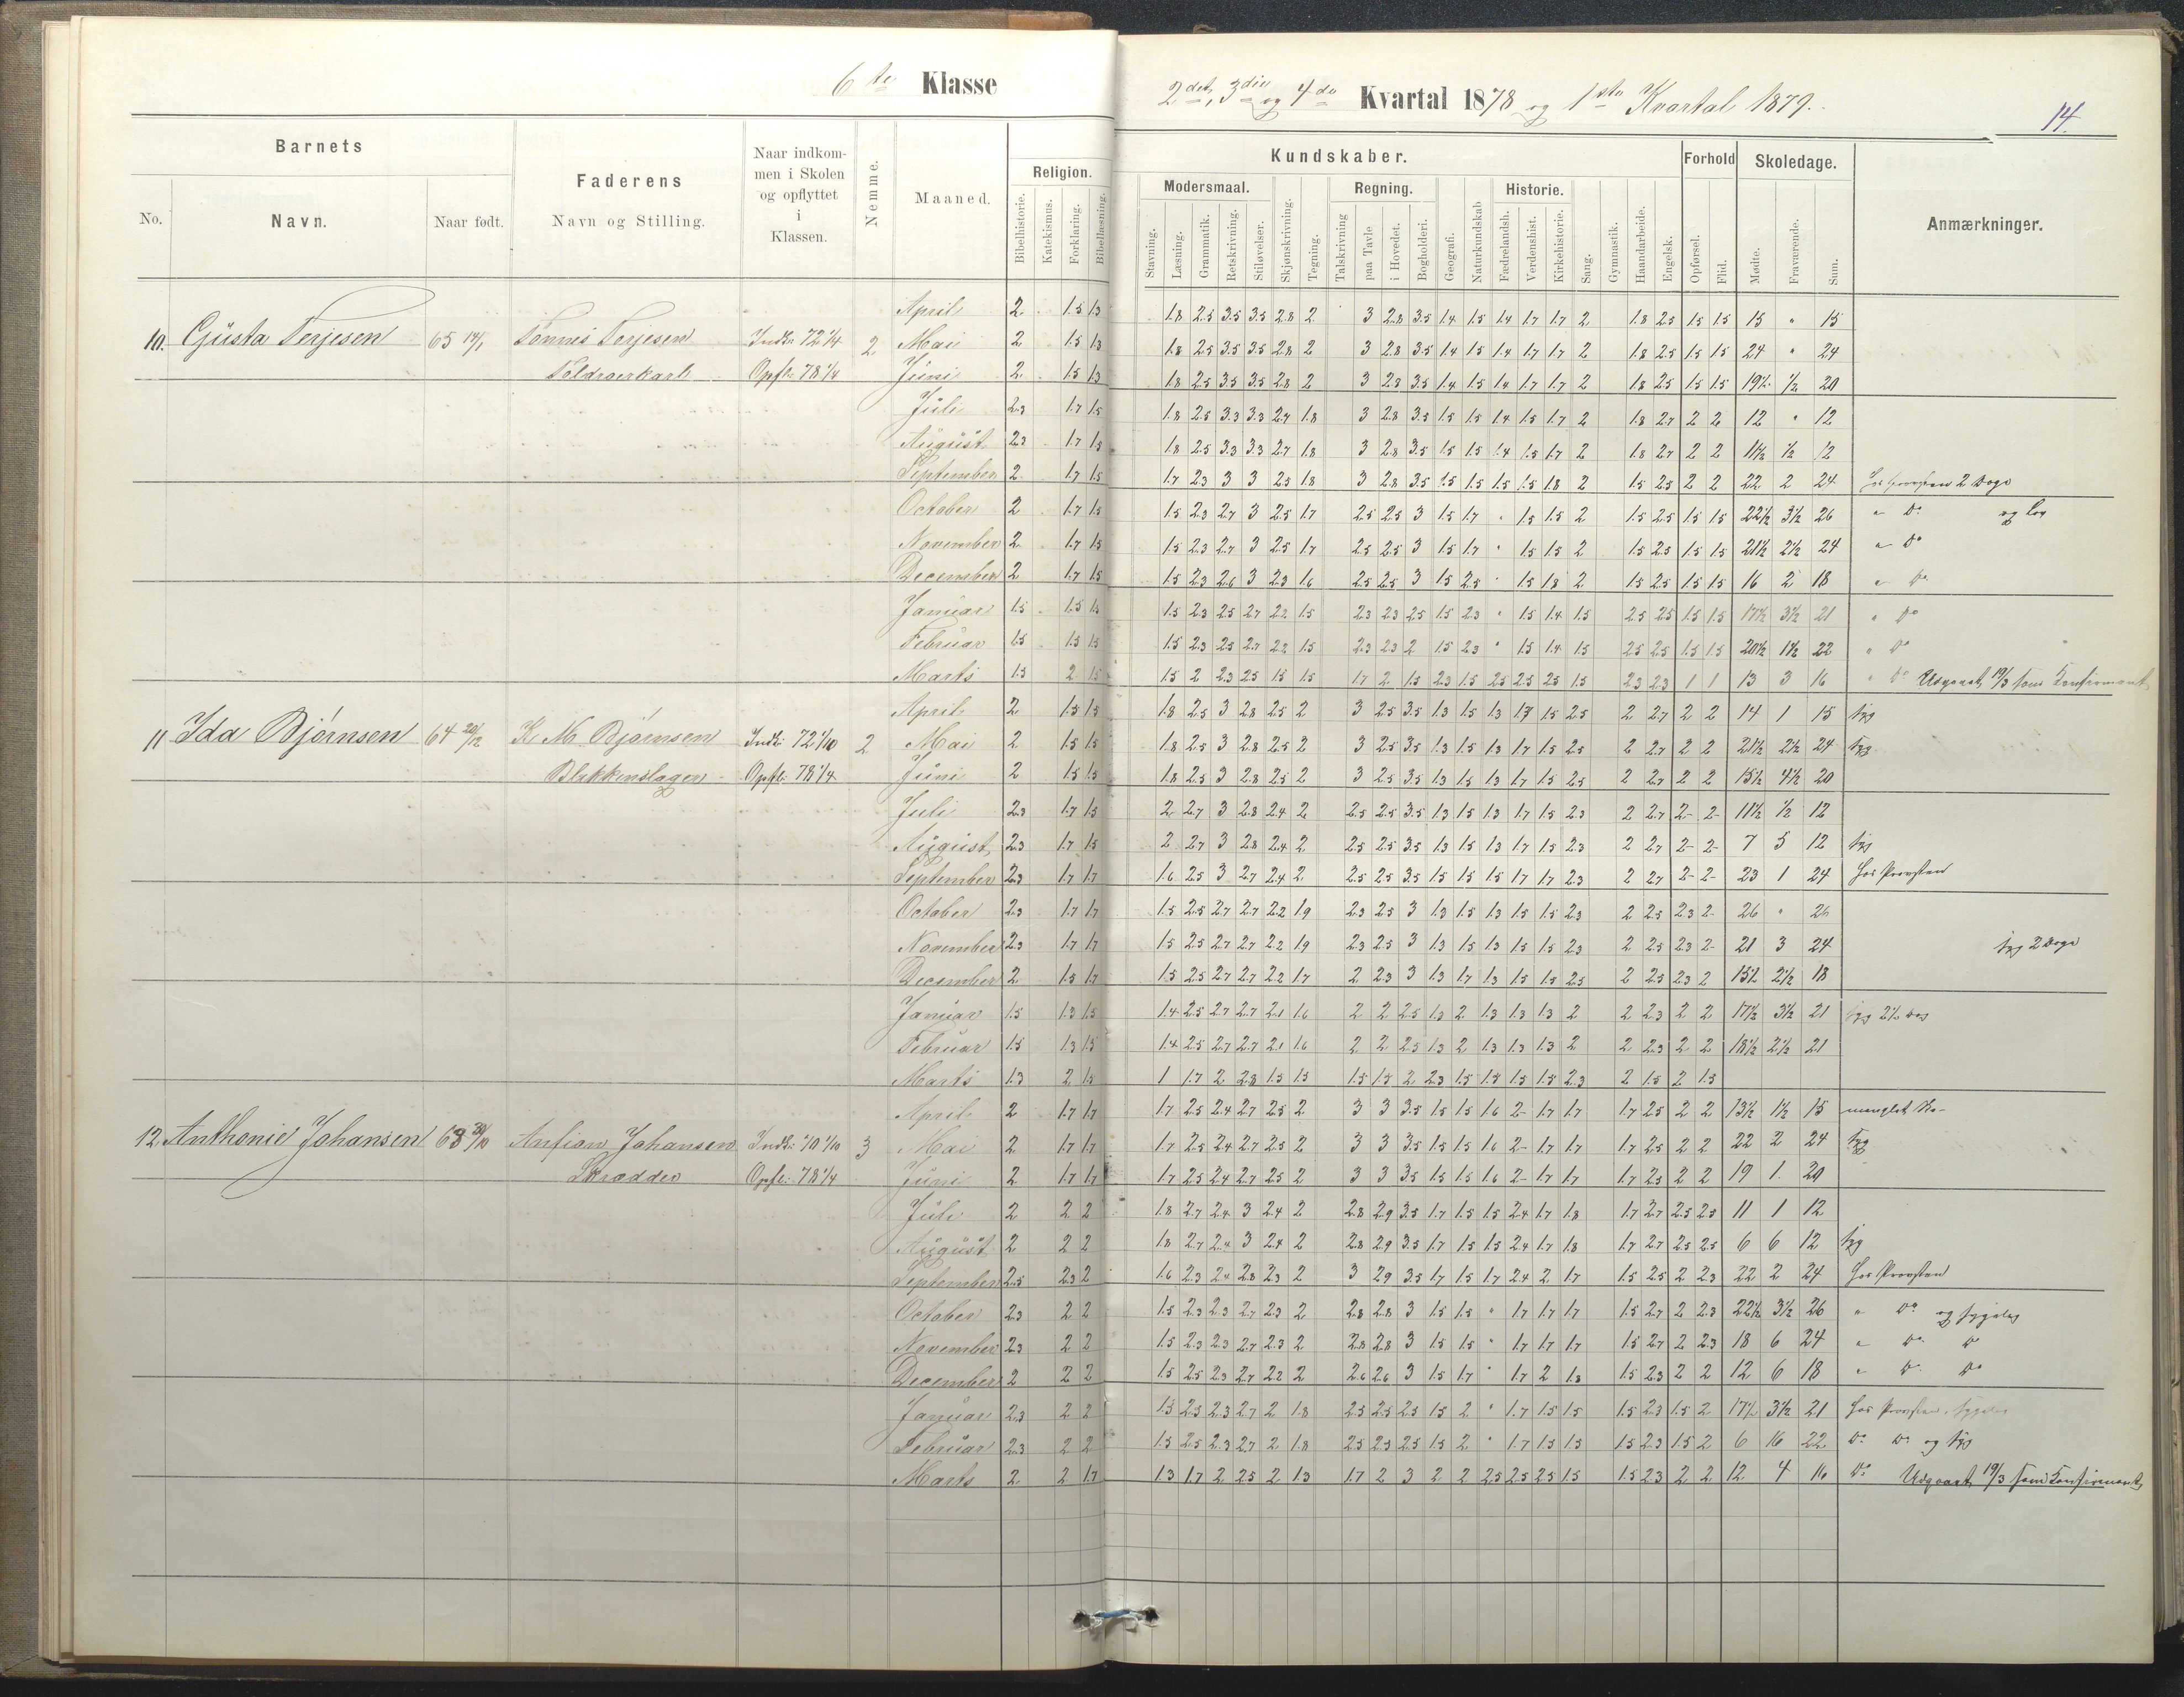 6te Klasse
2det, 3die og 4de Kvartal 1878 og 1ste Kvartal 1879.
14.
Barnets
No.
Navn.
Naar født.
Faderens
Navn og Stilling.
Naar indkom-
men i Skolen
og opflyttet
i
Klassen.
Nemme.
Maaned.
Religion.
Bibelhistorie.
Katekismus.
Forklaring.
Bibellæsning.
Kundskaber.
Modersmaal.
Stavning.
Læsning.
Grammatik.
Retskrivning.
Stiløvelser.
Skjønskrivning.
Tegning.
Regning.
Talskrivning
paa Tavle
i Hovedet.
Bogholderi.
Geografi.
Naturkundskab
Historie.
Fædrelandsh.
Verdenshist.
Kirkehistorie.
Sang.
Gymnastik.
Haandarbeide.
Engelsk.
Forhold
Opførsel.
Flid.
Skoledage.
Mødte.
Fraværende.
Sum.
Anmærkninger.
April 2 1.5 1.3 1.8 2.5 3.5 3.5 2.8 2 3 2.8 3.5 1.4 1.5 1.4 1.7 1.7 2 1.8 2.5 1.5 1.5 15 " 15
10. Gusta Terjesen 65 14/1 Tønnes Terjesen Indk: 72 1/4 2 Mai 2 1.5 1.3 1.8 2.5 3.5 3.5 2.8 2 3 2.8 3.5 1.4 1.5 1.4 1.7 1.7 2 1.8 2.5 1.5 1.5 24 " 24
Toldroerkarl Opfl: 78 1/4 Juni 2 1.5 1.3 1.8 2.5 3.5 3.5 2.8 2 3 2.8 3.5 1.4 1.5 1.4 1.7 1.7 2 1.8 2.5 1.5 1.5 19½ ½ 20
Juli 2.3 1.7 1.5 1.8 2.5 3.3 3.3 2.7 1.8 3 2.8 3.5 1.5 1.5 1.4 1.5 1.7 2 1.8 2.7 2 2 12 " 12
August 2.3 1.7 1.5 1.8 2.5 3.3 3.3 2.7 1.8 3 2.8 3.5 1.5 1.5 1.4 1.5 1.7 2 1.8 2.7 2 2 11½ ½ 12
September 2 1.7 1.5 1.7 2.3 3 3 2.5 1.8 3 2.8 3.5 1.5 1.5 1.5 1.5 1.8 2 1.5 2.5 2 2 22 2 24 hos Provsten 2 Dage
October 2 1.7 1.5 1.5 2.3 2.7 3 2.5 1.7 2.5 2.5 3 1.5 1.7 " 1.5 1.5 2 1.5 2.5 1.5 1.5 22½ 3½ 26 " Do og Lov
November 2 1.7 1.5 1.5 2.3 2.7 3 2.5 1.7 2.5 2.5 3 1.5 1.7 " 1.5 1.5 2 1.5 2.5 1.5 1.5 21½ 2½ 24 " Do
December 2 1.7 1.5 1.5 2.3 2.6 3 2.3 1.6 2.5 2.5 3 1.5 2.5 " 1.5 1.8 2 1.5 2.5 1.5 1.5 16 2 18 " Do
Januar 1.5 1.5 1.5 1.5 2.3 2.5 2.7 2.2 1.5 2.3 2.3 2.5 1.5 2.3 " 1.5 1.4 1.5 2.5 2.5 1.5 1.5 17½ 3½ 21 " Do
Februar 1.5 1.5 1.5 1.5 2.3 2.5 2.7 2.2 1.5 2.3 2.3 2 1.5 2.3 " 1.5 1.4 1.5 2.5 2.5 1.5 1.5 20½ 1½ 22 " Do
Marts 1.3 2 1.5 1.5 2 2.3 2.5 1.5 1.5 1.7 2 1.5 2.3 1.5 2.5 2.5 2.5 1.5 2.3 2.3 1 1 13 3 16 " Do Udgaaet 19/3 som Konfirmant,
April 2 1.5 1.5 1.8 2.5 3 2.8 2.5 2 3 2.5 3.5 1.3 1.5 1.3 1.7 1.5 2.5 2 2.7 2 2 14 1 15 syg
11 Ida Bjørnsen 64 20/12 K. M. Bjørnsen Indk: 72 1/10 2 Mai 2 1.5 1.5 1.8 2.5 3 2.8 2.5 2 3 2.5 3.5 1.3 1.5 1.3 1.7 1.5 2.5 2 2.7 2 2 21½ 2½ 24 syg
Blikkenslager Opfl: 78 1/4 Juni 2 1.5 1.5 1.8 2.5 3 2.8 2.5 2 3 2.5 3.5 1.3 1.5 1.3 1.7 1.5 2.5 2 2.7 2 2 15½ 4½ 20
Juli 2.3 1.7 1.5 2 2.7 3 2.8 2.4 2 2.5 2.5 3.5 1.3 1.5 1.3 1.7 1.5 2.3 2 2.7 2- 2- 11½ ½ 12
August 2.3 1.7 1.5 2 2.7 3 2.8 2.4 2 2.5 2.5 3.5 1.3 1.5 1.3 1.7 1.5 2.3 2 2.7 2- 2- 7 5 12 syg
September 2.3 1.7 1.7 1.6 2.5 3 2.7 2.4 2 2.5 2.5 3.5 1.5 1.5 1.5 1.7 1.7 2.3 2 2.7 2- 2- 23 1 24 hos Provsten
October 2.3 1.7 1.7 1.5 2.5 2.7 2.7 2.2 1.9 2.3 2.5 3 1.3 1.5 1.3 1.5 1.5 2.3 2 2.5 2.3 2- 26 " 26
November 2.3 1.7 1.7 1.5 2.5 2.7 2.7 2.2 1.9 2.3 2.5 3 1.3 1.5 1.3 1.5 1.5 2.3 2 2.5 2.3 2- 21 3 24 syg 2 Dage
December 2 1.5 1.7 1.5 2.5 2.7 2.7 2.2 1.7 2 2.3 3 1.3 1.7 1.3 1.5 1.5 2.5 2 2.5 2.3 2 15½ 2½ 18
Januar 1.5 1.3 1.5 1.4 2.5 2.7 2.7 2.1 1.6 2 2 2.5 1.3 2 1.3 1.3 1.3 2 2 2.3 2 2 17½ 3½ 21 syg 2½ Dag
Februar 1.5 1.3 1.5 1.4 2.5 2.7 2.7 2.1 1.6 2 2 2.5 1.3 2 1.3 1.3 1.3 2 2 2.3 2 2 18½ 2½ 21
Marts 1.3 2 1.5 1 1.7 2 2.3 1.5 1.5 1.5 1.5 2 2.3 1.5 1.5 1.5 1.5 2.3 2 1.5 2 1.5
April 2 1.7 1.7 1.7 2.5 2.4 2.7 2.5 2 3 3 3.5 1.5 1.5 1.6 2- 1.7 1.7 1.7 2.5 2 2 13½ 1½ 15 manglet Sko-
12. Anthonie Johansen 63 20/10 Anfion Johansen Indk: 70 1/10 3 Mai 2 1.7 1.7 1.7 2.5 2.4 2.7 2.5 2 3 3 3.5 1.5 1.5 1.6 2- 1.7 1.7 1.7 2.5 2 2 22 2 24 syg
Skrædder Opfl: 78 1/4 Juni 2 1.7 1.7 1.7 2.5 2.4 2.7 2.5 2 3 3 3.5 1.5 1.5 1.6 2- 1.7 1.7 1.7 2.5 2 2 19 1 20
Juli 2 2 2 1.8 2.7 2.4 3 2.4 2 2.8 2.9 3.5 1.7 1.5 1.5 2.4 1.7 1.8 1.7 2.7 2.5 2.5 11 1 12
August 2 2 2 1.8 2.7 2.4 3 2.4 2 2.8 2.9 3.5 1.7 1.5 1.5 2.4 1.7 1.8 1.7 2.7 2.5 2.5 6 6 12 syg
September 2.5 2.3 2 1.6 2.3 2.4 2.8 2.3 2 3 2.9 3.5 1.7 1.5 1.7 2.4 2 1.7 1.5 2.5 2 2.3 22 2 24 hos Provsten
October 2.3 2 2 1.5 2.3 2.3 2.7 2.3 2 2.8 2.8 3 1.5 1.5 " 1.7 1.7 1.7 1.5 2.7 2 2.3 22½ 3½ 26 " Do og sygelig
November 2.3 2 2 1.5 2.3 2.3 2.7 2.3 2 2.8 2.8 3 1.5 1.5 " 1.7 1.7 1.7 1.5 2.7 2 2.3 18 6 24 " Do Do
December 2 2 2 1.5 2.5 2.3 2.7 2.2 2 2.6 2.6 3 1.5 1.7 " 1.7 2 1.8 1.5 2.3 2 2 12 6 18 " Do Do
Januar 2.3 2 2 1.5 2.5 2.3 2.7 2 1.8 2.5 2.5 2.5 1.5 2 " 1.7 1.5 1.5 1.5 2.3 1.5 2 17½ 3½ 21 hos Provsten, sygelig
Februar 2.3 2 2 1.5 2.5 2.3 2.7 2 1.8 2.5 2.5 2.5 1.5 2 " 1.7 1.5 1.5 1.5 2.3 1.5 2 6 16 22 Do Do og syg
Marts 2 2 1.7 1.3 1.7 2 2.5 2 1.3 1.7 2 3 2 2 2.5 2.5 2.5 1.5 1.5 2.3 2 2 12 4 16 Do Udgaaet 19/3 som Konfirmant,